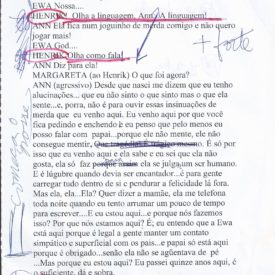 EWA Nossa....
HENRIK Olha a linguagem, Ann! A linguagem!
ANN Ela fica num joguinho de merda comigo e não quero
jogar mais!
EWA God....
HENRIK Olha como fala!
ANN Diz para ela!
MARGARETA (ao Henrik) O que foi agora?
ANN (agressivo) Desde que nasci me dizem que eu tenho
alucinações... que eu não sinto o que sinto mas o que ela
sente...e, porra, não é para ouvir essas insinuações de
merda que eu venho aqui. Eu venho aqui por que você
fica pedindo e enchendo e eu penso que pelo menos eu
posso falar com papai...porque ele não mente, ele não
consegue mentir. Que tragédia! E trágico mesmo. É só por
isso que eu venho aqui e ela sabe e eu sei que ela não
gosta, ela só faz porque assim ela se julga um ser humano.
E é lúgubre quando devia ser encantador...é para gente
carregar tudo dentro de si e pendurar a felicidade lá fora.
Mas ela, ela...Ela? Quer dizer a mamãe, ela me telefona
toda noite quando eu tento arrumar um pouco de tempo
para escrever....E eu estou aqui...e porque nós fazemos
isso? Por que nós estamos aqui? É; eu entendo que a Ewa
está aqui porque é legal a gente manter um contato
simpático e superficial com os pais...e papai só está aqui
porque é obrigado...senão ela não se agüentava de pé
...Mas porque eu estou aqui? Eu passei quinze anos aqui, é
o suficiente, dá e sobra.
corte